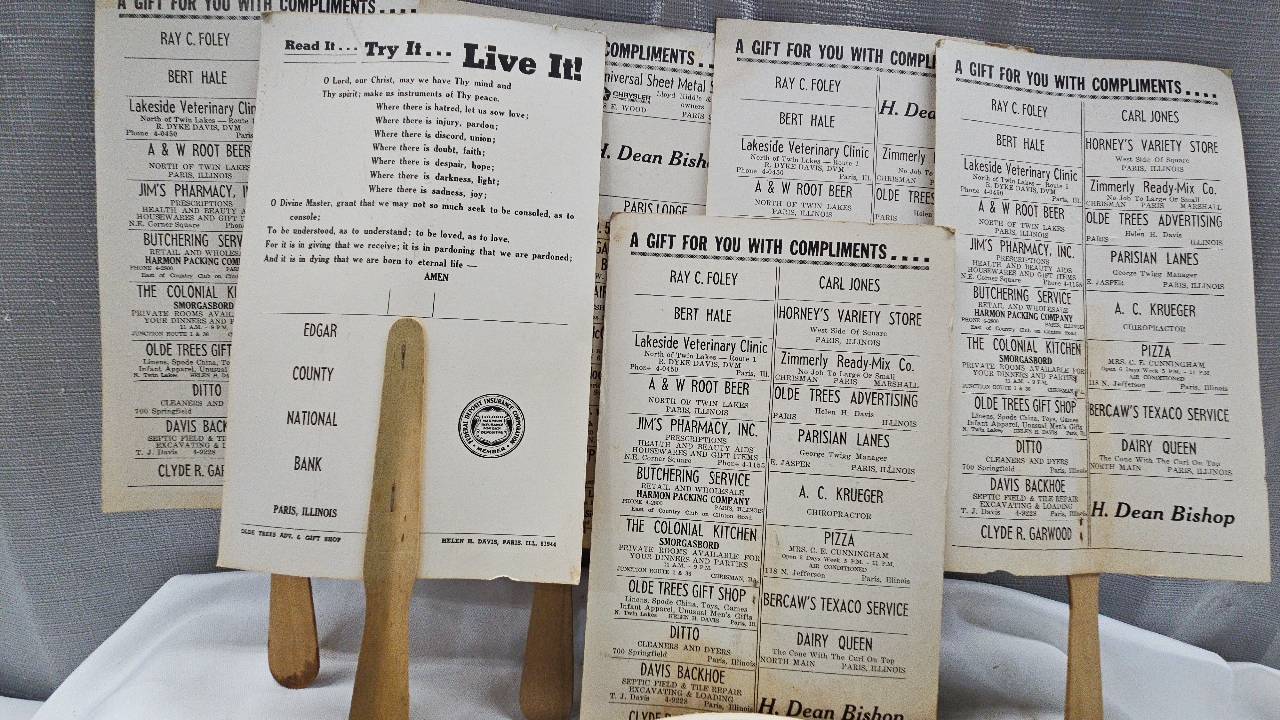 A GIFT FOR YOU WITH COMPLIMENTS....
RAY C. FOLEY
BERT HALE
Lakeside Veterinary Clin
North of Twin Lakes — Route 1
R. DYKE DAVIS, DVM
Phone 4-0450 Paris
A & W ROOT BEER
NORTH OF TWIN LAKES
PARIS, ILLINOIS
JIM'S PHARMACY, I
PRESCRIPTIONS
HEALTH AND BEAUTY A
HOUSEWARES AND GIFT
N.E. Corner Square Phone
BUTCHERING SERV
RETAIL AND WHOLES
HARMON PACKING COM
PHONE 4-2800
East of Country Club on Clin
THE COLONIAL KI
SMORGASBORD
PRIVATE ROOMS AVAIL
YOUR DINNERS AND P
11 A.M. - 9 P.M.
JUNCTION ROUTE 1 & 36
OLDE TREES GIFT
Linens, Spode China, To
Infant Apparel, Unusual
N. Twin Lakes HELEN B. DAVIS
DITTO
CLEANERS AND
700 Springfield
DAVIS BACK
SEPTIC FIELD & T
EXCAVATING &
T. J. Davis 4-9228
CLYDE R. GA
Read It... Try It... Live It!
O Lord, our Christ, may we have Thy mind and
Thy spirit; make us instruments of Thy peace.
Where there is hatred, let us sow love;
Where there is injury, pardon;
Where there is discord, union;
Where there is doubt, faith;
Where there is despair, hope;
Where there is darkness, light;
Where there is sadness, joy;
O Divine Master, grant that we may not so much seek to be consoled, as to
console;
To be understood, as to understand; to be loved, as to love.
For it is in giving that we receive; it is in pardoning that we are pardoned;
And it is in dying that we are born to eternal life —
AMEN
EDGAR
COUNTY
NATIONAL
BANK
PARIS, ILLINOIS
FEDERAL DEPOSIT INSURANCE CORPORATION
MEMBER
OLDE TREES ADV. & GIFT SHOP
HELEN H. DAVIS, PARIS, ILL. 61944
COMPLIMENTS..
niversal Sheet Metal
Lloyd
owners
CHRYSLER
E. WOOD PARIS
H. Dean Bish
PARIS LODGE
A GIFT FOR YOU WITH COMPL
RAY C. FOLEY
BERT HALE
Lakeside Veterinary Clinic
North of Twin Lakes — Route 1
R. DYKE DAVIS, DVM
Phone 4-0450 Paris, Ill.
A & W ROOT BEER
NORTH OF TWIN LAKES
PARIS, ILLINOIS
H. Dea
Zimmerly
No Job To
CHRISMAN
OLDE TREES
Helen
PARIS
A GIFT FOR YOU WITH COMPLIMENTS....
RAY C. FOLEY
BERT HALE
Lakeside Veterinary Clinic
North of Twin Lakes — Route 1
R. DYKE DAVIS, DVM
Phone 4-0450 Paris, Ill.
A & W ROOT BEER
NORTH OF TWIN LAKES
PARIS, ILLINOIS
JIM'S PHARMACY, INC.
PRESCRIPTIONS
HEALTH AND BEAUTY AIDS
HOUSEWARES AND GIFT ITEMS
N.E. Corner Square Phone 4-1155
BUTCHERING SERVICE
RETAIL AND WHOLESALE
HARMON PACKING COMPANY
PHONE 4-2800
East of Country Club on Clinton Road
THE COLONIAL KITCHEN
SMORGASBORD
PRIVATE ROOMS AVAILABLE FOR
YOUR DINNERS AND PARTIES
11 A.M. - 9 P.M.
JUNCTION ROUTE 1 & 36 CHRISMAN, ILL.
OLDE TREES GIFT SHOP
Linens, Spode China, Toys, Games
Infant Apparel, Unusual Men's Gifts
N. Twin Lakes HELEN B. DAVIS Paris, Ill.
DITTO
CLEANERS AND DYERS
700 Springfield Paris, Illinois
DAVIS BACKHOE
SEPTIC FIELD & TILE REPAIR
EXCAVATING & LOADING
T. J. Davis 4-9228 Paris, Illinois
CLYDE
CARL JONES
HORNEY'S VARIETY STORE
West Side Of Square
PARIS, ILLINOIS
Zimmerly Ready-Mix Co.
No Job To Large Or Small
CHRISMAN PARIS MARSHALL
OLDE TREES ADVERTISING
Helen H. Davis
PARIS ILLINOIS
PARISIAN LANES
George Twigg Manager
E. JASPER PARIS, ILLINOIS
A. C. KRUEGER
CHIROPRACTOR
PIZZA
MRS. C. E. CUNNINGHAM
Open 6 Days Week 5 P.M. - 11 P.M.
AIR CONDITIONED
118 N. Jefferson Paris, Illinois
BERCAW'S TEXACO SERVICE
DAIRY QUEEN
The Cone With The Curl On Top
NORTH MAIN PARIS, ILLINOIS
H. Dean Bishop
A GIFT FOR YOU WITH COMPLIMENTS....
RAY C. FOLEY
BERT HALE
Lakeside Veterinary Clinic
North of Twin Lakes — Route 1
R. DYKE DAVIS, DVM
Phone 4-0450 Paris, Ill.
A & W ROOT BEER
NORTH OF TWIN LAKES
PARIS, ILLINOIS
JIM'S PHARMACY, INC.
PRESCRIPTIONS
HEALTH AND BEAUTY AIDS
HOUSEWARES AND GIFT ITEMS
N.E. Corner Square Phone 4-1155
BUTCHERING SERVICE
RETAIL AND WHOLESALE
HARMON PACKING COMPANY
PHONE 4-2800 PARIS, ILLINOIS
East of Country Club on Clinton Road
THE COLONIAL KITCHEN
SMORGASBORD
PRIVATE ROOMS AVAILABLE FOR
YOUR DINNERS AND PARTIES
11 A.M. - 9 P.M.
JUNCTION ROUTE 1 & 36 CHRISMAN,
OLDE TREES GIFT SHOP
Linens, Spode China, Toys, Games
Infant Apparel, Unusual Men's Gifts
N. Twin Lakes HELEN B. DAVIS Paris, Ill.
DITTO
CLEANERS AND DYERS
700 Springfield Paris, Illinois
DAVIS BACKHOE
SEPTIC FIELD & TILE REPAIR
EXCAVATING & LOADING
T. J. Davis 4-9228 Paris, Illinois
CLYDE R. GARWOOD
CARL JONES
HORNEY'S VARIETY STORE
West Side Of Square
PARIS, ILLINOIS
Zimmerly Ready-Mix Co.
No Job To Large Or Small
CHRISMAN PARIS MARSHALL
OLDE TREES ADVERTISING
Helen H. Davis
PARIS ILLINOIS
PARISIAN LANES
George Twigg Manager
E. JASPER PARIS, ILLINOIS
A. C. KRUEGER
CHIROPRACTOR
PIZZA
MRS. C. E. CUNNINGHAM
Open 6 Days Week 5 P.M. - 11 P.M.
AIR CONDITIONED
118 N. Jefferson Paris, Illinois
BERCAW'S TEXACO SERVICE
DAIRY QUEEN
The Cone With The Curl On Top
NORTH MAIN PARIS, ILLINOIS
H. Dean Bishop